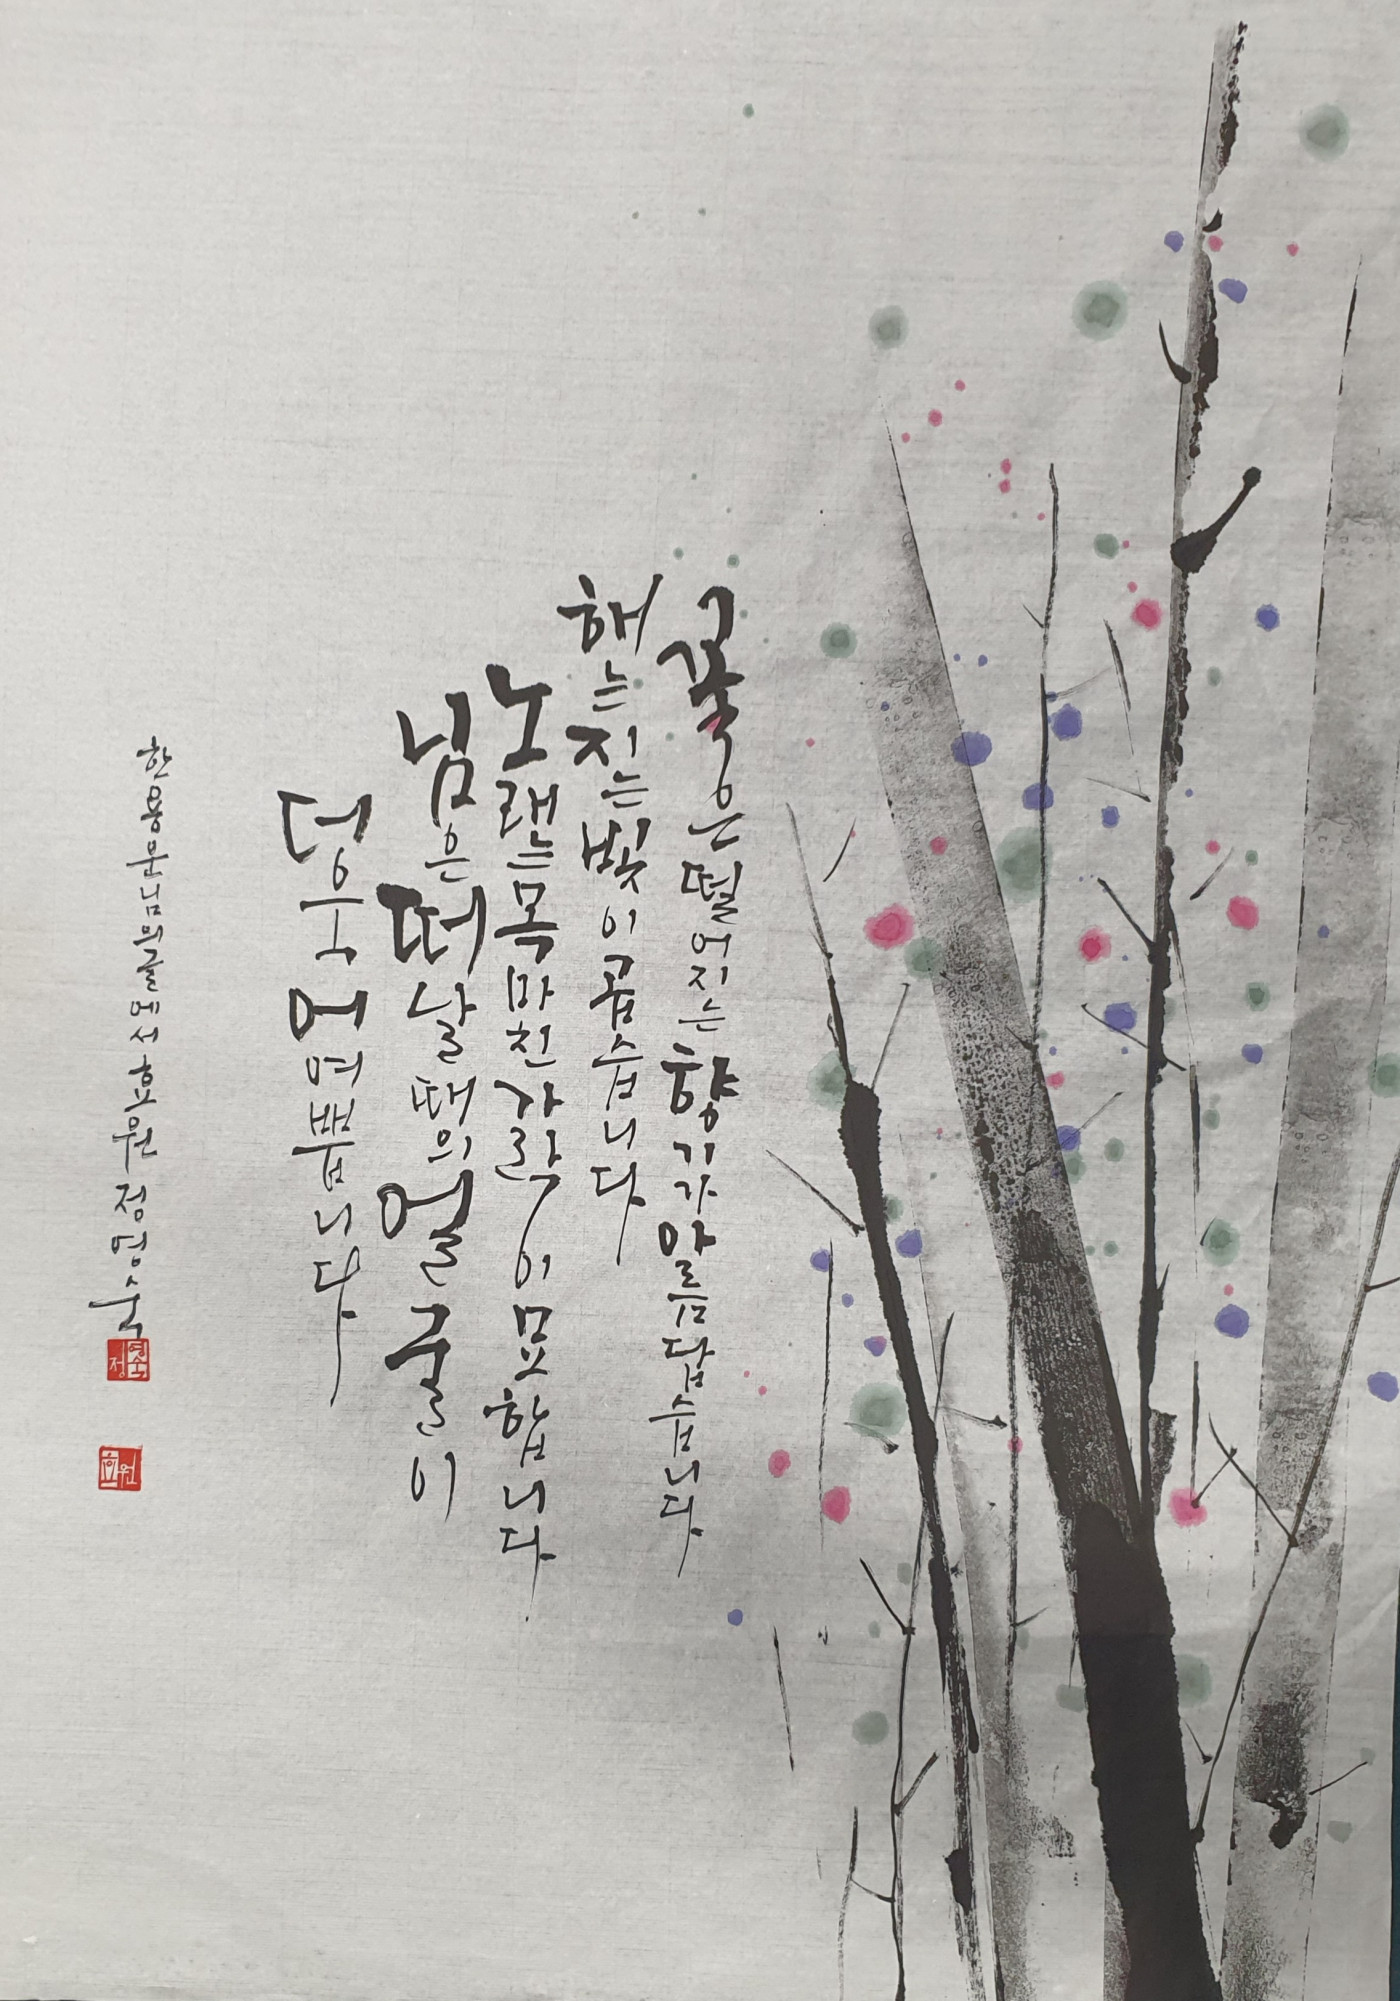 꽃은떨어지는향기가아름답습니다
해는지는빛이곱습니다
노래는목마친가락이묘합니다
님은떠날때의얼굴이
더욱어여쁩니다
한용운님의글에서효원정영숙
정영숙
효원